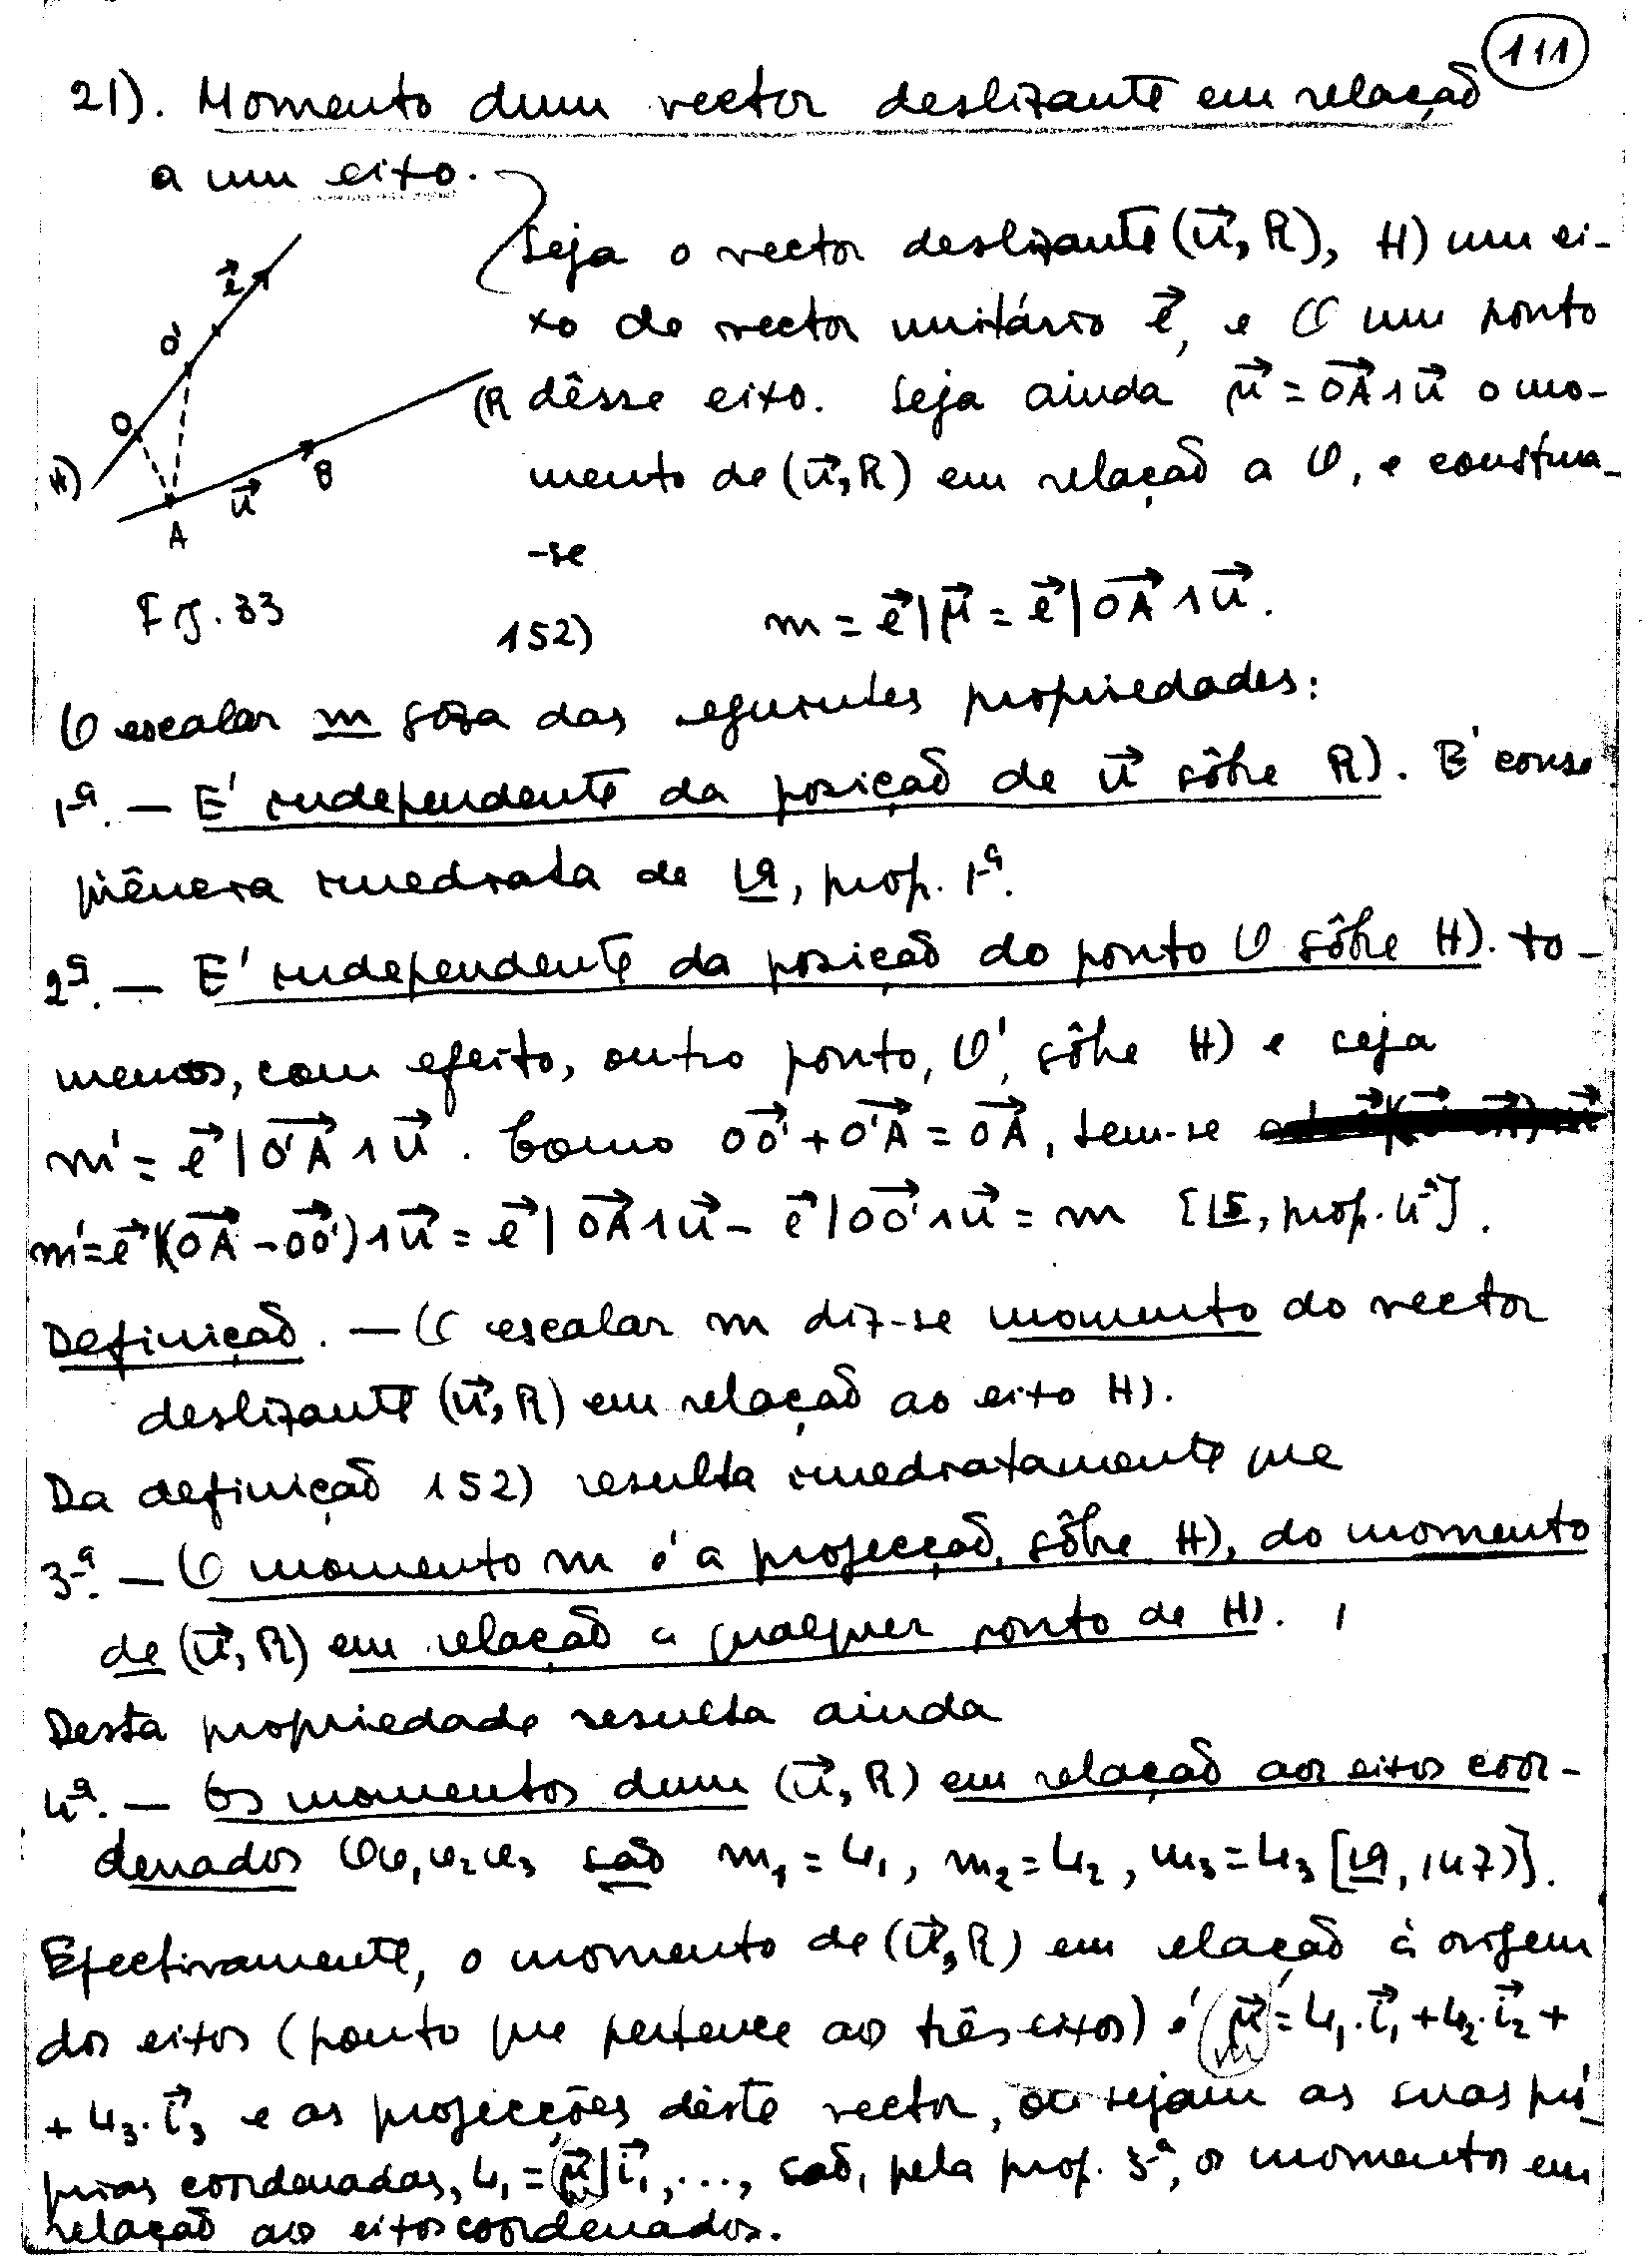 111
21). Momento dum vector deslizante em relação
a um eixo.
Seja o vector deslizante (u⃗, R), H) um ei-
xo de vector unitário e⃗, e O um ponto
dêsse eixo. Seja ainda μ⃗ = OA⃗ ∧ u⃗ o mo-
mento de (u⃗, R) em relação a O, e construa-
-se
152) m = e⃗ | μ⃗ = e⃗ | OA⃗ ∧ u⃗.
H) O O' e⃗ A u⃗ B (R
Fig. 33
O escalar m goza das seguintes propriedades:
1ª. — E' independente da posição de u⃗ sôbre R). E' conse
quência imediata de 19, prop. 1ª.
2ª. — E' independente da posição do ponto O sôbre H). to-
memos, com efeito, outro ponto, O', sôbre H) e seja
m' = e⃗ | O'A⃗ ∧ u⃗. Como OO'⃗ + O'A⃗ = OA⃗, tem-se
m' = e⃗ |(OA⃗ - OO'⃗) ∧ u⃗ = e⃗ | OA⃗ ∧ u⃗ - e⃗ | OO'⃗ ∧ u⃗ = m [15, prop. 4ª].
Definição. — O escalar m diz-se momento do vector
deslizante (u⃗, R) em relação ao eixo H).
Da definição 152) resulta imediatamente que
3ª. — O momento m é a projecção, sôbre H), do momento
de (u⃗, R) em relação a qualquer ponto de H).
Desta propriedade resulta ainda
4ª. — Os momentos dum (u⃗, R) em relação aos eixos coor-
denados são m₁ = 4₁, m₂ = 4₂, m₃ = 4₃ [19, 147)].
Efectivamente, o momento de (u⃗, R) em elação à origem
dos eixos (ponto que pertence aos três eixos) é μ⃗ = 4₁.i⃗₁ + 4₂.i⃗₂ +
+ 4₃.i⃗₃ e as projecções dêste vector, ou sejam as suas pró-
prias coordenadas, 4₁ = μ⃗ | i⃗₁, ..., são, pela prop. 3ª, os momentos em
relação aos eixos coordenados.